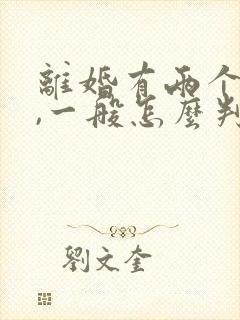 離婚有兩个
,一般怎麼判
劉文奎